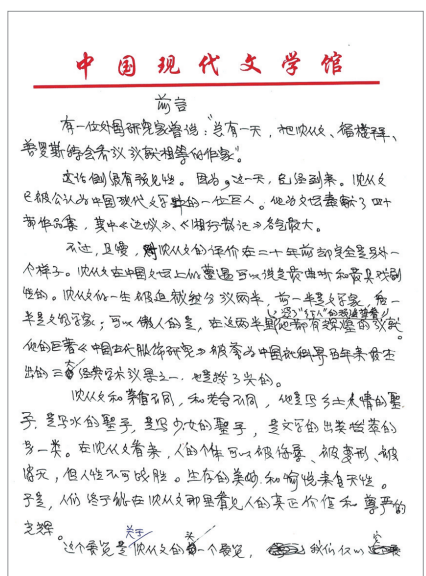 中国现代文学馆
前言
有一位外国研究家曾说:“总有一天,把沈从文、福楼拜、
普罗斯特会看议成相等的作家”。
这话倒很有预见性。因为,这一天,已经到来。沈从文
已被公认为中国现代文学的一位巨人。他为文坛贡献了四十
部作品集,其中《边城》、《湘行散记》给最大。
不过,且慢,对沈从文的评价在二十年前却完全是另外一
个样子。沈从文在中国文坛上的遭遇可以说是最曲折和最具戏剧
性的。沈从文的一生被血般分成两半,前一半是文学家,后一
半是文物学家;可以傲人的是,在这两半里他都有辉煌的成就。
他的巨著《中国古代服饰研究》被誉为中国社科界百年来最杰
出的三大经典学术成果之一,也是够了头的。
沈从文和不同,和老舍不同,他是写乡土风情的圣
手,是写水的圣手,是写少女的圣手,是文学的出类拔萃的
另一类。在沈从文看来,人的个体可以被侮辱、被变形、被
消灭,但人性不可战胜。生存的美妙和愉悦来自天性。
于是,人们终于能在沈从文那里看见人的真正价值和尊严的
光辉。
关于
这个展览是沈从文的第一个展览,我们仅以